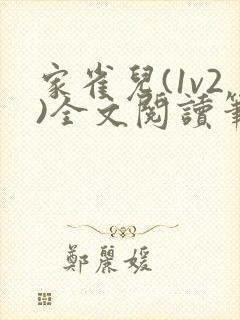 家雀兒(1v2
)全文閱讀筆
鄭麗媛